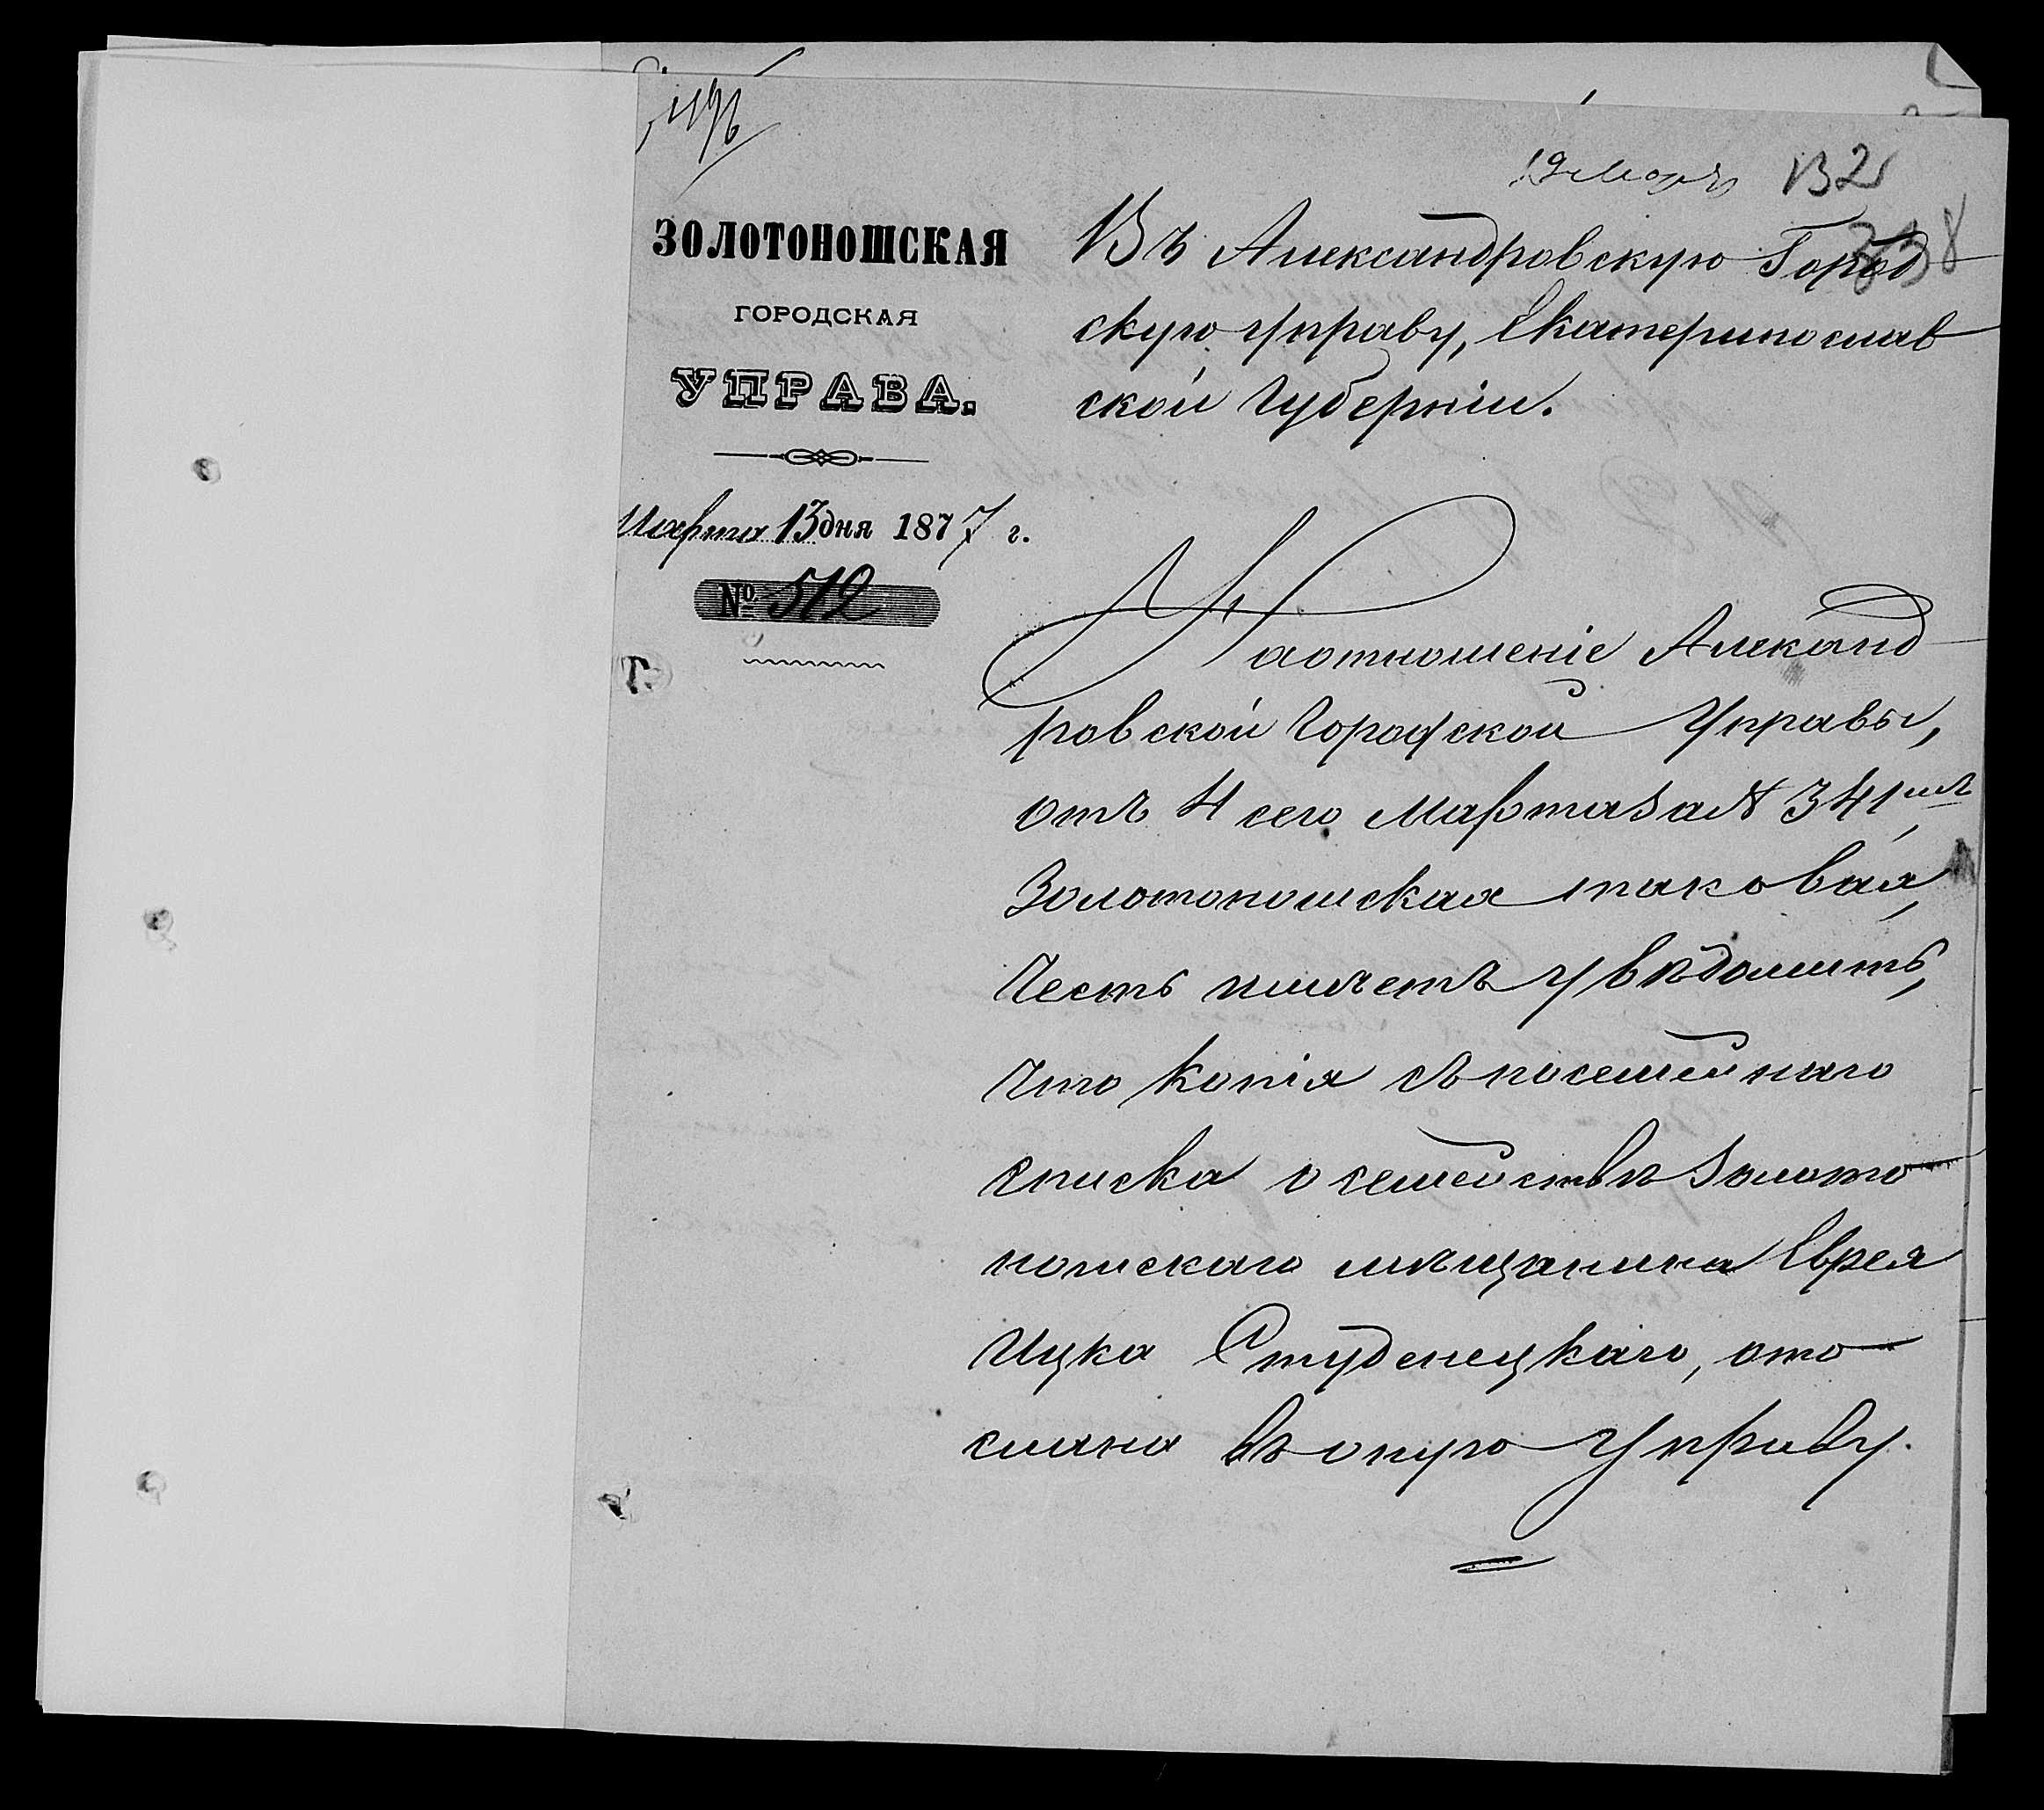 19 Март 132
238
ЗОЛОТОНОШСКАЯ
ГОРОДСКАЯ
УПРАВА.
Марта 13 дня 1877 г.
№ 512
Въ Александровскую Город
скую Управу, Екатеринослав
ской Губерніи.
На отношеніе Александ
ровской Городской Управы,
отъ 4 сего Марта за № 341мъ
Золотоношская таковая,
Честь имѣетъ увѣдомить,
что Копія съ посемейнаго
списка о семействѣ Золото
ношскаго мѣщанина Еврея
Ицка Студенецкаго, ото
слана въ оную Управу.